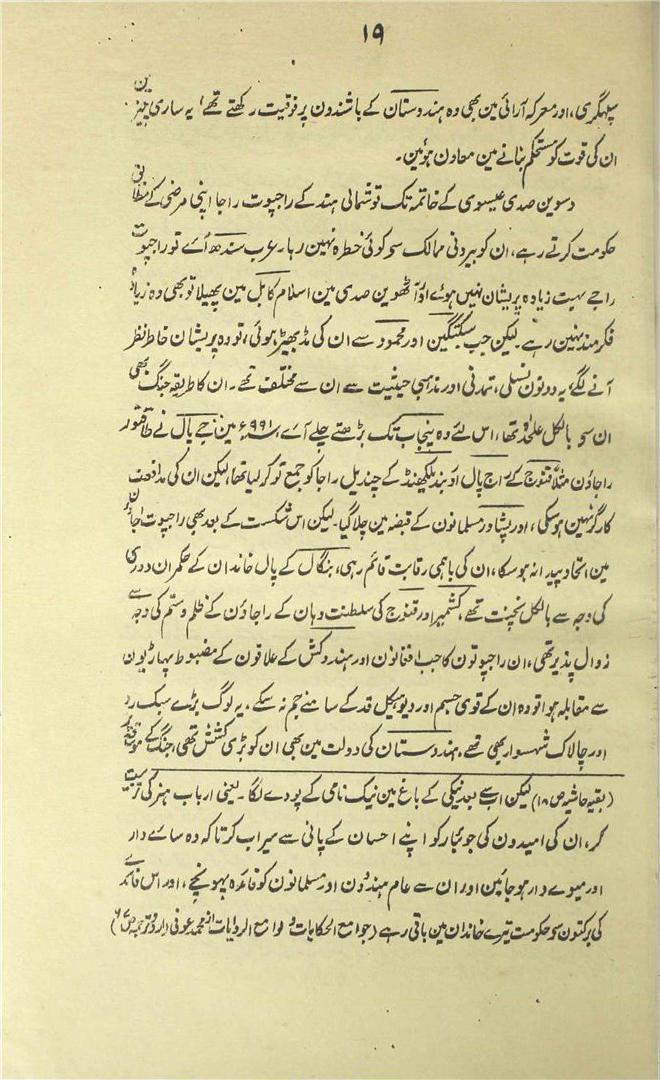 ۱۹
سپہگری، اور معرکہ آرائی مین بھی وہ ہندوستان کے باشندون پر فوقیت رکھتے تھے، یہ ساری چیزین
ان کی قوت کو مستحکم بنانے مین معاون ہوئین۔
دسوین صدی عیسوی کے خاتمہ تک تو شمالی ہند کے راجپوت راجا اپنی مرضی کے مطابق
حکومت کرتے رہے، ان کو بیرونی ممالک سے کوئی خطرہ نہین رہا۔ عرب سندھ آئے تو راجپوت
راجے بہت زیادہ پریشان نہیں ہوئے اور آٹھوین صدی مین اسلام کابل مین پھیلا تو بھی وہ زیادہ
فکرمند نہین رہے۔ لیکن جب سبکتگین اور محمود سے ان کی مڈبھیڑ ہوئی، تو وہ پریشان خاطر نظر
آنے لگے، یہ دونون نسلی، تمدنی اور مذہبی حیثیت سے ان سے مختلف تھے۔ ان کا طریقہ جنگ بھی
ان سے بالکل علحدہ تھا، اس لئے وہ پنجاب تک بڑھتے چلے آئے، ۹۹۱ء مین جے پال نے طاقتور
راجاؤن مثلاً قنوج کے راج پال اور بندیلکھنڈ کے چندیل راجا کو جمع تو کر لیا تھا، لیکن ان کی مدافعت
کارگر نہین ہو سکی، اور پشاور مسلمانون کے قبضہ مین چلا گیا۔ لیکن اس شکست کے بعد بھی راجپوت راجاؤن
مین اتحاد پیدا نہ ہو سکا، ان کی باہمی رقابت قائم رہی، بنگال کے پال خاندان کے حکمران دوری
کی وجہ سے بالکل نچنت تھے، کشمیر اور قنوج کی سلطنت وہان کے راجاؤن کے ظلم وستم کی وجہ سے
زوال پذیر تھی، ان راجپوتون کا جب افغانون اور ہندوکش کے علاقون کے مضبوط پہاڑیون
سے مقابلہ ہوا تو وہ ان کے قوی جسم اور دیو ہیکل قد کے سامنے جم نہ سکے۔ یہ لوگ بڑے سبک رو
اور چالاک شہسوار بھی تھے، ہندوستان کی دولت مین بھی ان کو بڑی کشش تھی، جنگ کے موقع پر
(بقیہ حاشیہ ص ۱۸) لیکن اب سے بعد نیکی کے باغ مین نیک نامی کے پودے لگا۔ یعنی ارباب ہنر کی تربیت
کر، ان کی امیدون کی جوئبار کو اپنے احسان کے پانی سے سیراب کر تا کہ وہ سائے دار
اور میوے دار ہو جائین اور ان سے عام ہندؤن اور مسلمانون کو فائدہ پہونچے، اور اس فائدے
کی برکتون سے حکومت تیرے خاندان مین باقی رہے (جوامع الحکایات و لوامع الروایات از محمد عوفی اردو ترجمہ ص ۶)